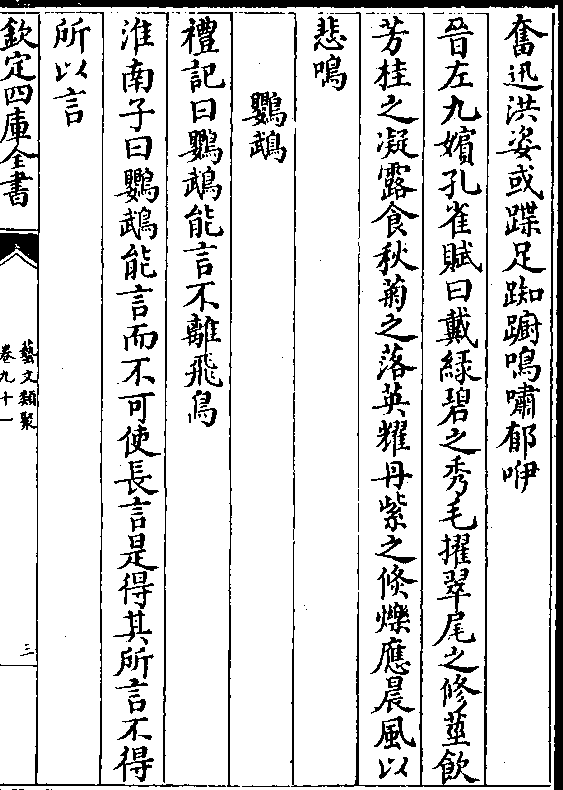 奮迅洪姿或蹀足踟蹰鳴嘯郁咿
晉左九嬪孔雀賦曰戴緑碧之秀毛擢翠尾之修莖飲
芳桂之凝露食秋菊之落英耀丹紫之倏爍應晨風以
悲鳴
鸚鵡
禮記曰鸚鵡能言不離飛鳥
淮南子曰鸚鵡能言而不可使長言是得其所言不得
所以言
欽定四庫全書
藝文類聚
卷九十一
三